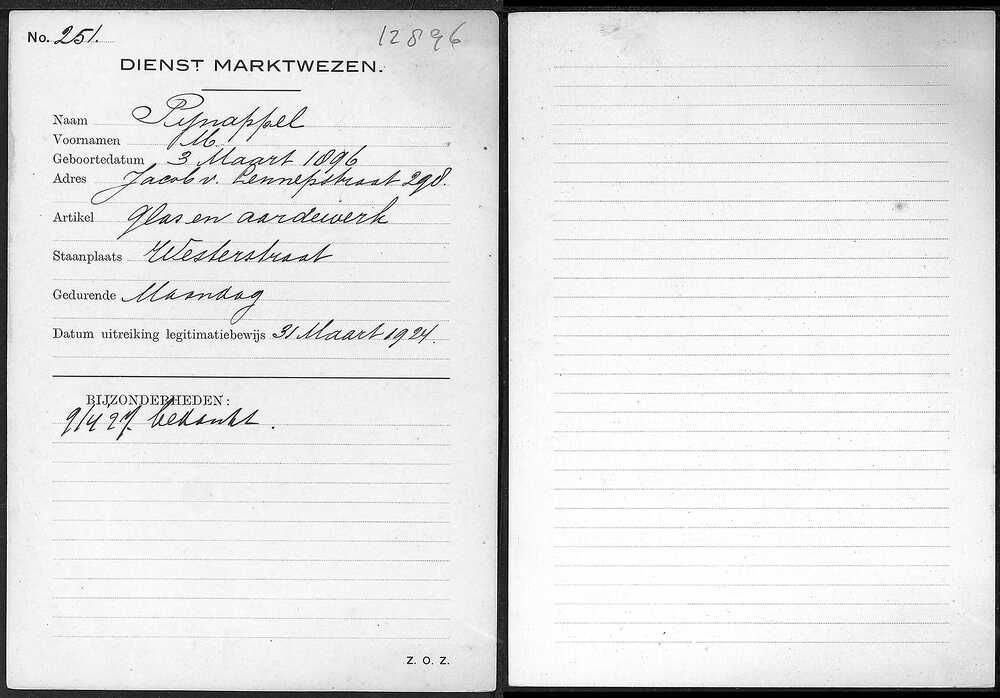 No. 251.
12896
DIENST MARKTWEZEN.
Naam Pijnappel
Voornamen M.
Geboortedatum 3 Maart 1896
Adres Jacob v. Lennepstraat 298.
Artikel glas en aardewerk
Staanplaats Westerstraat
Gedurende Maandag
Datum uitreiking legitimatiebewijs 31 Maart 1924.
BIJZONDERHEDEN:
9/4 27. bedankt.
Z. O. Z.